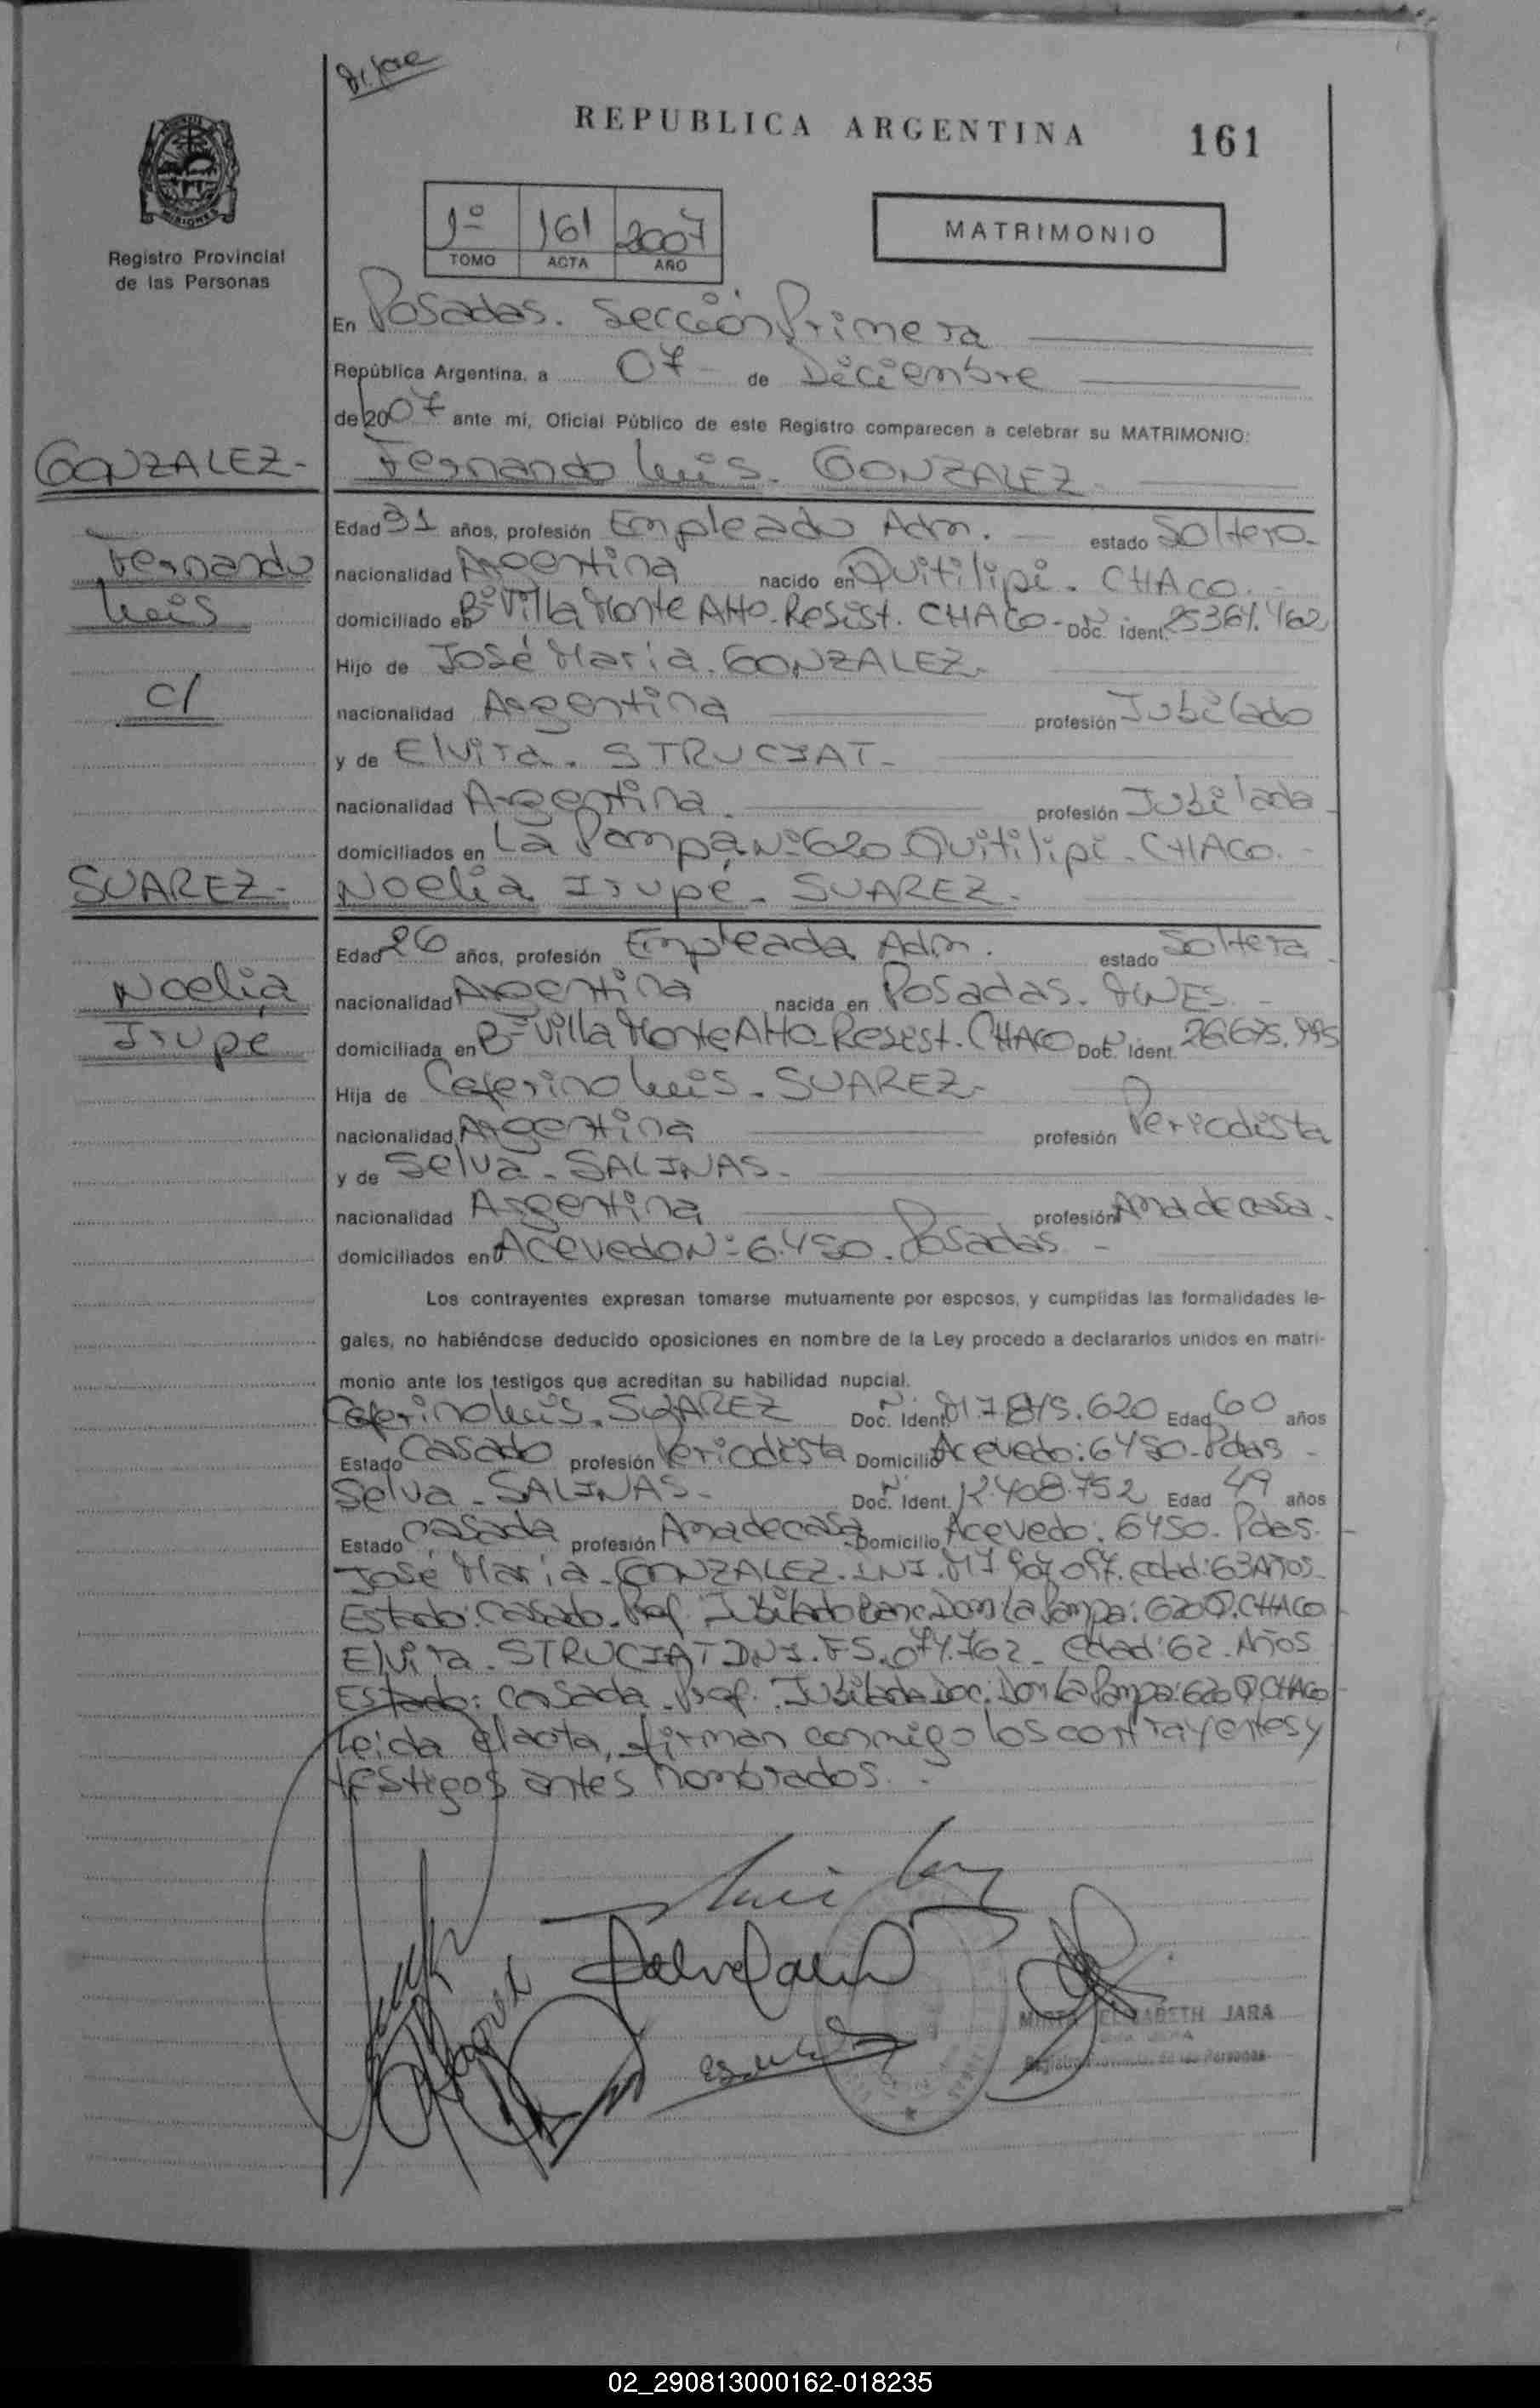 REPUBLICA ARGENTINA
161
1º 161 2007
TOMO ACTA AÑO
MATRIMONIO
MISIONES
Registro Provincial
de las Personas
En Posadas. Sección Primera
República Argentina, a 07 de Diciembre
de 2007 ante mí, Oficial Público de este Registro comparecen a celebrar su MATRIMONIO:
GONZALEZ-
Fernando Luis. GONZALEZ
Fernando
Luis
c/
Edad 31 años, profesión Empleado Adm. estado Soltero-
nacionalidad Argentina nacido en Quitilipi. CHACO.-
domiciliado en Bº Villa Monte Alto-Resist. CHACO- Doc. Ident.
Hijo de José María. GONZALEZ-
nacionalidad Argentina profesión Jubilado
y de Elvira. STRUCIAT-
nacionalidad Argentina. profesión Jubilada-
domiciliados en La Pampa Nº 620 Quitilipi-CHACO.-
SUAREZ-
Noelia Irupé- SUAREZ-
Noelia
Irupé
Edad 26 años, profesión Empleada Adm. estado Soltera
nacionalidad Argentina nacida en Posadas. -
domiciliada en Bº Villa Monte Alto-Resist. CHACO Doc. Ident.
Hija de Ceferino Luis. SUAREZ-
nacionalidad Argentina profesión Periodista
y de Selva-SALINAS-
nacionalidad Argentina profesión Ama de casa.
domiciliados en Acevedo Nº 6.450. Posadas -
Los contrayentes expresan tomarse mutuamente por esposos, y cumplidas las formalidades le-
gales, no habiéndose deducido oposiciones en nombre de la Ley procedo a declararlos unidos en matri-
monio ante los testigos que acreditan su habilidad nupcial.
Ceferino Luis. SUAREZ Doc. Ident. Edad 60 años
Estado Casado profesión Periodista Domicilio Acevedo: 6450-Pdas -
Selva-SALINAS- Doc. Ident. 12.408.752 Edad 49 años
Estado casada profesión Ama de casa Domicilio Acevedo: 6450. Pdas.-
José María-GONZALEZ. edad: 63 Años-
Estado: casado. Prof. Jubilado Banc. Dom La Pampa: 620 Q. CHACO-
Elvira. STRUCIAT DNI. F5.074.762- Edad: 62-Años
Estado: casada. Prof. Jubilada Doc. Dom La Pampa: 620 Q. CHACO-
Leida el acta, firman conmigo los contrayentes y
testigos antes nombrados.
MIRTA ELISABETH JARA
Registro Provincial de las Personas
02_290813000162-018235